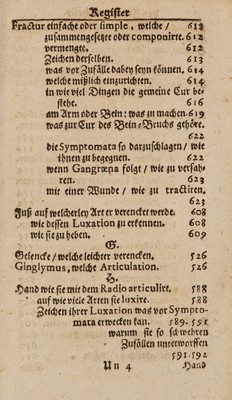 Register
Fractur einfache oder simple, welche / 612
zusammengesetzte oder componirte. 612
vermengte. 612
Zeichen derselben. 613
was vor Zufälle dabey seyn können. 614
welche mißlich einzurichten. 614
in wie viel Dingen die gemeine Cur be-
stehe. 616
am Arm oder Bein: was zu machen. 619
was zur Cur des Bein-Bruchs gehöre.
622
die Symptomata so darzuschlagen / wie
ihnen zu begegnen. 622
wenn Gangræna folgt / wie zu verfah-
ren. 623
mit einer Wunde / wie zu tractiren.
623
Fuß auf welcherley Art er verencket werde. 608
wie dessen Luxation zu erkennen. 608
wie sie zu heben. 609
G.
Gelencke / welche leichter verencken. 526
Ginglymus, welche Articulation. 526
H.
Hand wie sie mit dem Radio articulirt. 588
auf wie viele Arten sie luxire. 588
Zeichen ihrer Luxation was vor Sympto-
mata erwecken kan. 589. 591
warum sie so schwehren
Zufällen unterworffen
591. 592
Uu 4 Hand